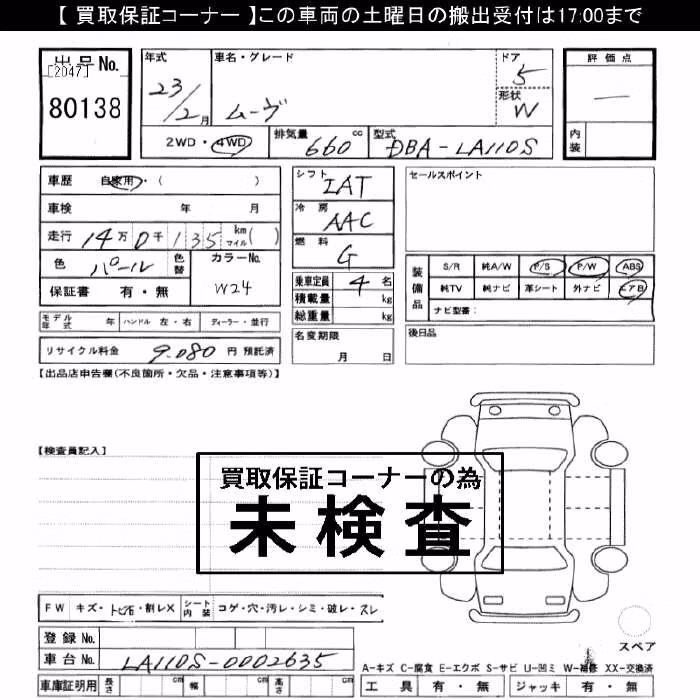 【 買取保証コーナー 】この車両の土曜日の搬出受付は17:00まで
出品No.
[2047]
80138
年式
23/2月
車名・グレード
ムーヴ
ドア
5
形状
W
評価点
―
内装
2WD・4WD
排気量
660 cc
型式
DBA-LA110S
車歴 自家用・( )
車検 年 月
走行 14万0千135 km マイル( )
色 パール 色替
カラーNo.
W24
保証書 有・無
シフト
IAT
冷房
AAC
燃料
G
乗車定員 4 名
積載量 kg
総重量 kg
セールスポイント
装備品
S/R 純A/W P/S P/W ABS
純TV 純ナビ 革シート 外ナビ エアB
ナビ型番:
モデル年式 年 ハンドル 左・右 ディーラー・並行
名変期限
月 日
後日品
リサイクル料金 9.080 円 預託済
【出品店申告欄(不良箇所・欠品・注意事項等)】
【検査員記入】
買取保証コーナーの為
未検査
FW キズ・トビ石・割レX シート内装 コゲ・穴・汚レ・シミ・破レ・スレ
登録No.
車台No. LA110S-0002635
スペア
A-キズ C-腐食 E-エクボ S-サビ U-凹ミ W-補修 XX-交換済
車庫証明用 長さ cm 幅 cm 高さ cm
工具 有・無 ジャッキ 有・無